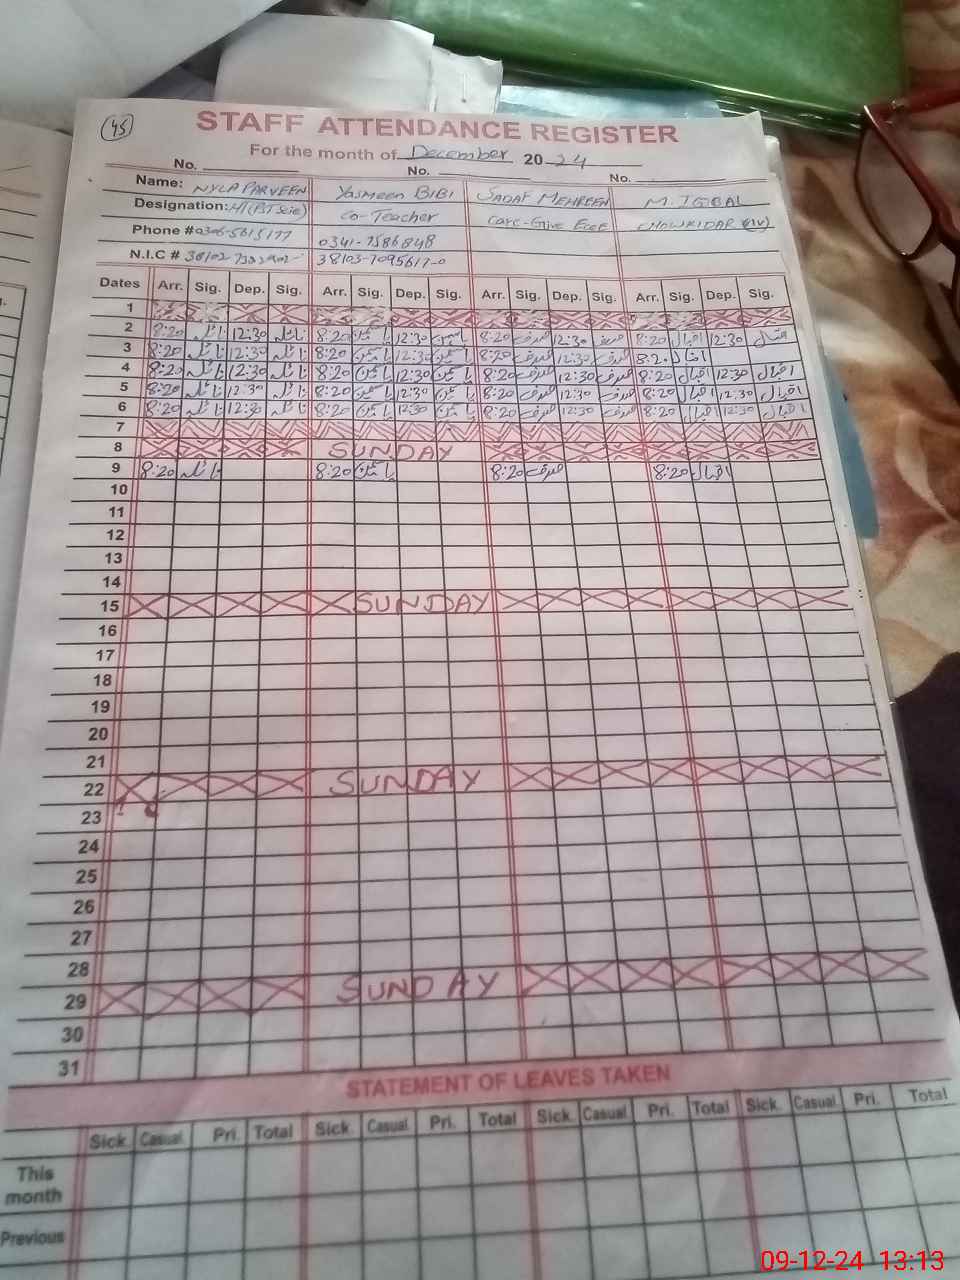 45
STAFF ATTENDANCE REGISTER
For the month of December 2024
No. No. No.
Name: NYLA PARVEEN YASMEEN BIBI SADAF MEHREEN M. IQBAL
Designation: Co-Teacher Care-Give ECCE CHOWKIDAR (IV)
Phone # 0341-7586848
N.I.C # 38103-7095617-0
Dates Arr. Sig. Dep. Sig. Arr. Sig. Dep. Sig. Arr. Sig. Dep. Sig. Arr. Sig. Dep. Sig.
1
2 8:20 نائلہ 12:30 نائلہ 8:20 یاسمین 12:30 یاسمین 8:20 صدف 12:30 صدف 8:20 اقبال 12:30 اقبال
3 8:20 نائلہ 12:30 نائلہ 8:20 یاسمین 12:30 یاسمین 8:20 صدف 12:30 صدف 8:20 اقبال
4 8:20 نائلہ 12:30 نائلہ 8:20 یاسمین 12:30 یاسمین 8:20 صدف 12:30 صدف 8:20 اقبال 12:30 اقبال
5 8:20 نائلہ 12:30 نائلہ 8:20 یاسمین 12:30 یاسمین 8:20 صدف 12:30 صدف 8:20 اقبال 12:30 اقبال
6 8:20 نائلہ 12:30 نائلہ 8:20 یاسمین 12:30 یاسمین 8:20 صدف 12:30 صدف 8:20 اقبال 12:30 اقبال
7
8 SUNDAY
9 8:20 نائلہ 8:20 یاسمین 8:20 صدف 8:20 اقبال
10
11
12
13
14
15 SUNDAY
16
17
18
19
20
21
22 SUNDAY
23
24
25
26
27
28
29 SUNDAY
30
31
STATEMENT OF LEAVES TAKEN
Sick Casual Pri. Total Sick Casual Pri. Total Sick Casual Pri. Total Sick Casual Pri. Total
This month
Previous
09-12-24 13:13